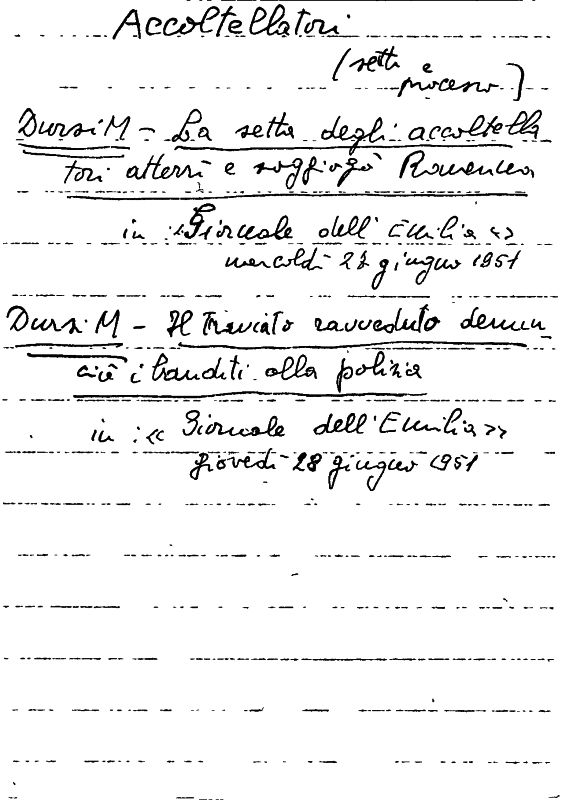 Accoltellatori
(setta e
processo)
Dursi M - La setta degli accoltella
tori atterrì e soggiogò Ravenna
in «Giornale dell'Emilia»
mercoldì 27 giugno 1951
Dursi M - Il traviato ravveduto denun_
ciò i banditi alla polizia
in: «Giornale dell'Emilia»
giovedì 28 giugno 1951